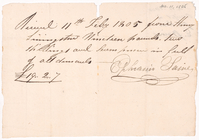 Received 11th Feby 1805 from Henry
Livingston Nineteen pounds two
shillings and seven pence in full
of all demands
Ephraim
£19.2.7